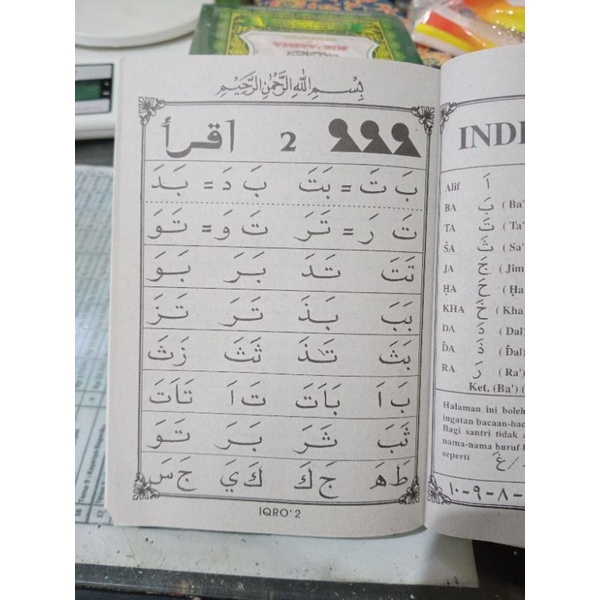 بِسْمِ اللهِ الرَّحْمٰنِ الرَّحِيْمِ
2 اقرأ
بَ تَ = بَتَ بَ دَ = بَدَ
تَ رَ = تَرَ تَ وَ = تَوَ
تَتَ تَدَ بَرَ بَوَ
بَبَ بَذَ تَرَ تَزَ
بَثَ تَذَ تَثَ زَثَ
بَ اَ بَاَتَ تَ اَ تَاَتَ
ثَبَ ثَرَ بَرَ تَوَ
طَهَ جَ كَ كَ يَ جَ سَ
IQRO' 2
Alif اَ
BA بَ ( Ba'
TA تَ ( Ta'
ṠA ثَ ( Sa'
JA جَ ( Jim
ḤA حَ ( Ha
KHA خَ ( Kha
DA دَ ( Dal)
ذَ
RA رَ ( Ra')
Ket. (Ba') (
Halaman ini boleh
ingatan bacaan-bac
Bagi santri tidak
nama-nama huruf
seperti
١٠-٩-٨-